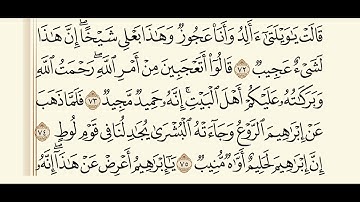 قَالَتْ يَٰوَيْلَتَىٰٓ ءَأَلِدُ وَأَنَا۠ عَجُوزٌ وَهَٰذَا بَعْلِى شَيْخًا ۖ إِنَّ هَٰذَا
لَشَىْءٌ عَجِيبٌ ٧٢ قَالُوٓا۟ أَتَعْجَبِينَ مِنْ أَمْرِ ٱللَّهِ ۖ رَحْمَتُ ٱللَّهِ
وَبَرَكَٰتُهُۥ عَلَيْكُمْ أَهْلَ ٱلْبَيْتِ ۚ إِنَّهُۥ حَمِيدٌ مَّجِيدٌ ٧٣ فَلَمَّا ذَهَبَ
عَنْ إِبْرَٰهِيمَ ٱلرَّوْعُ وَجَآءَتْهُ ٱلْبُشْرَىٰ يُجَٰدِلُنَا فِى قَوْمِ لُوطٍ ٧٤
إِنَّ إِبْرَٰهِيمَ لَحَلِيمٌ أَوَّٰهٌ مُّنِيبٌ ٧٥ يَٰٓإِبْرَٰهِيمُ أَعْرِضْ عَنْ هَٰذَآ ۖ إِنَّهُۥ